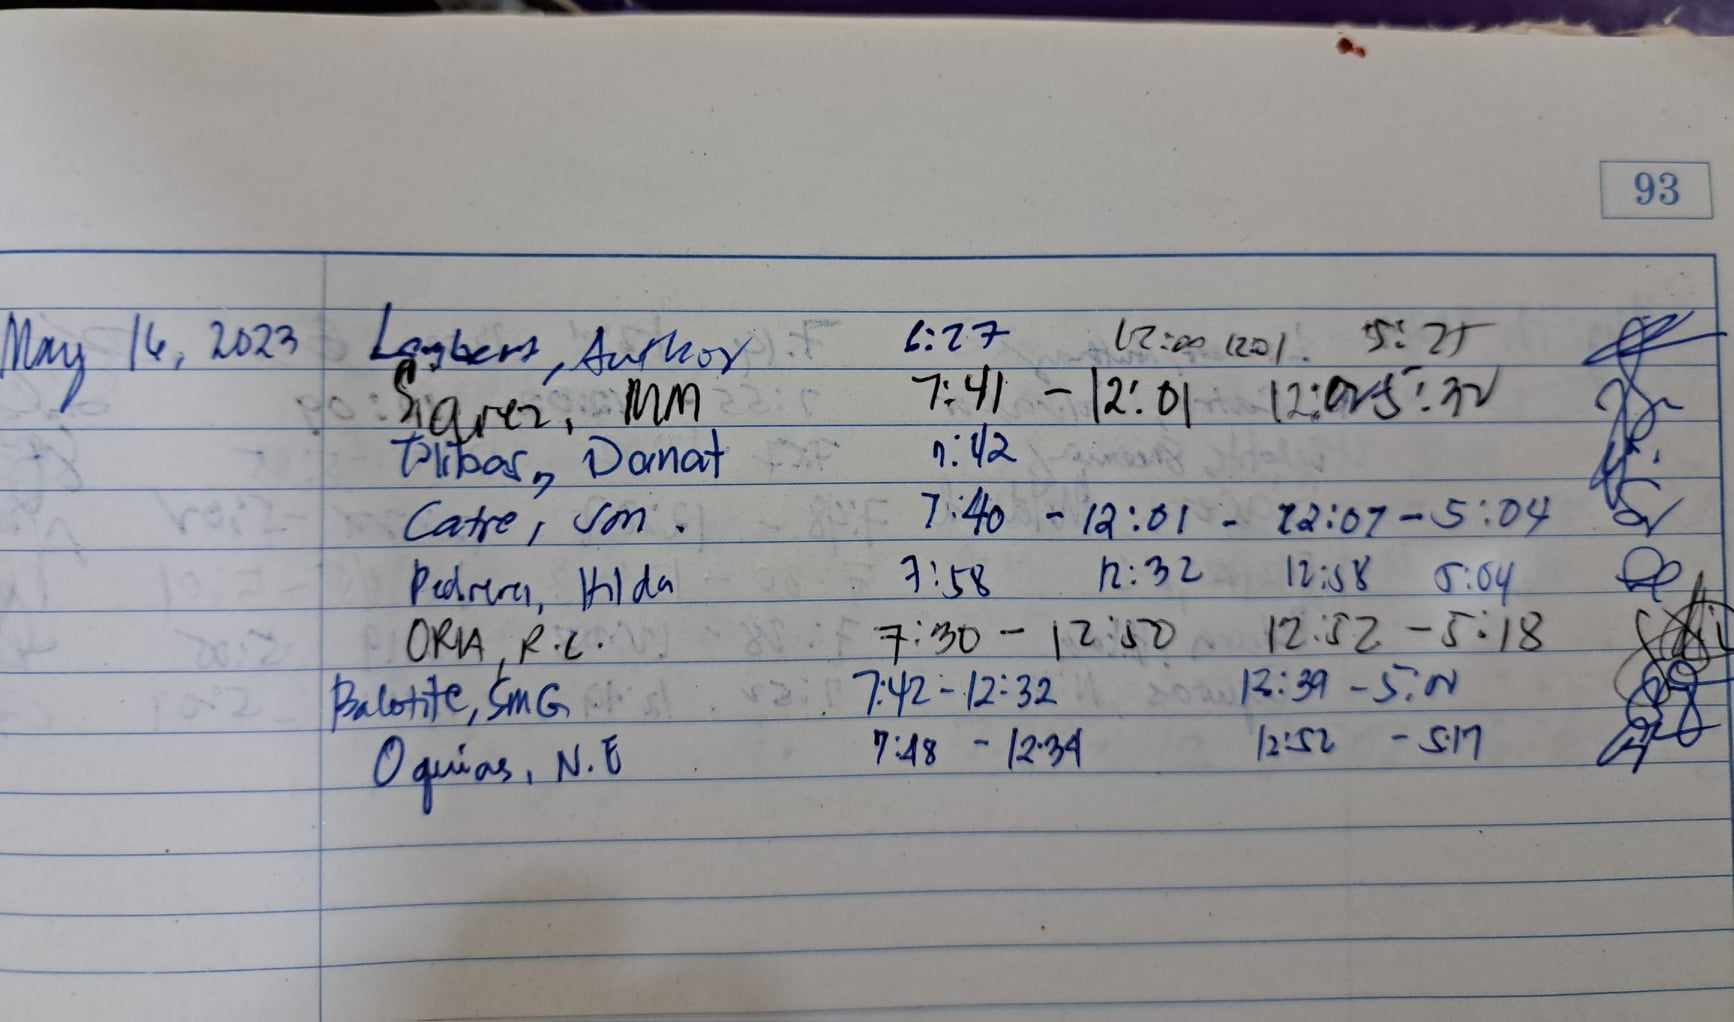 93
May 16, 2023 Author 6:27 12:00 1201. 5:25
Siarez, MM 7:41 - 12:01 12:02 5:32
Danat 7:42
Catre, SM. 7:40 - 12:01 - 12:07 - 5:04
Pedrera, Hilda 7:58 12:32 12:58 5:04
ORIA, R.C. 7:30 - 12:50 12:52 - 5:18
Balotite, SMG 7:42 - 12:32 12:39 - 5:01
Oquias, N.E 7:48 - 12:34 12:52 - 5:17